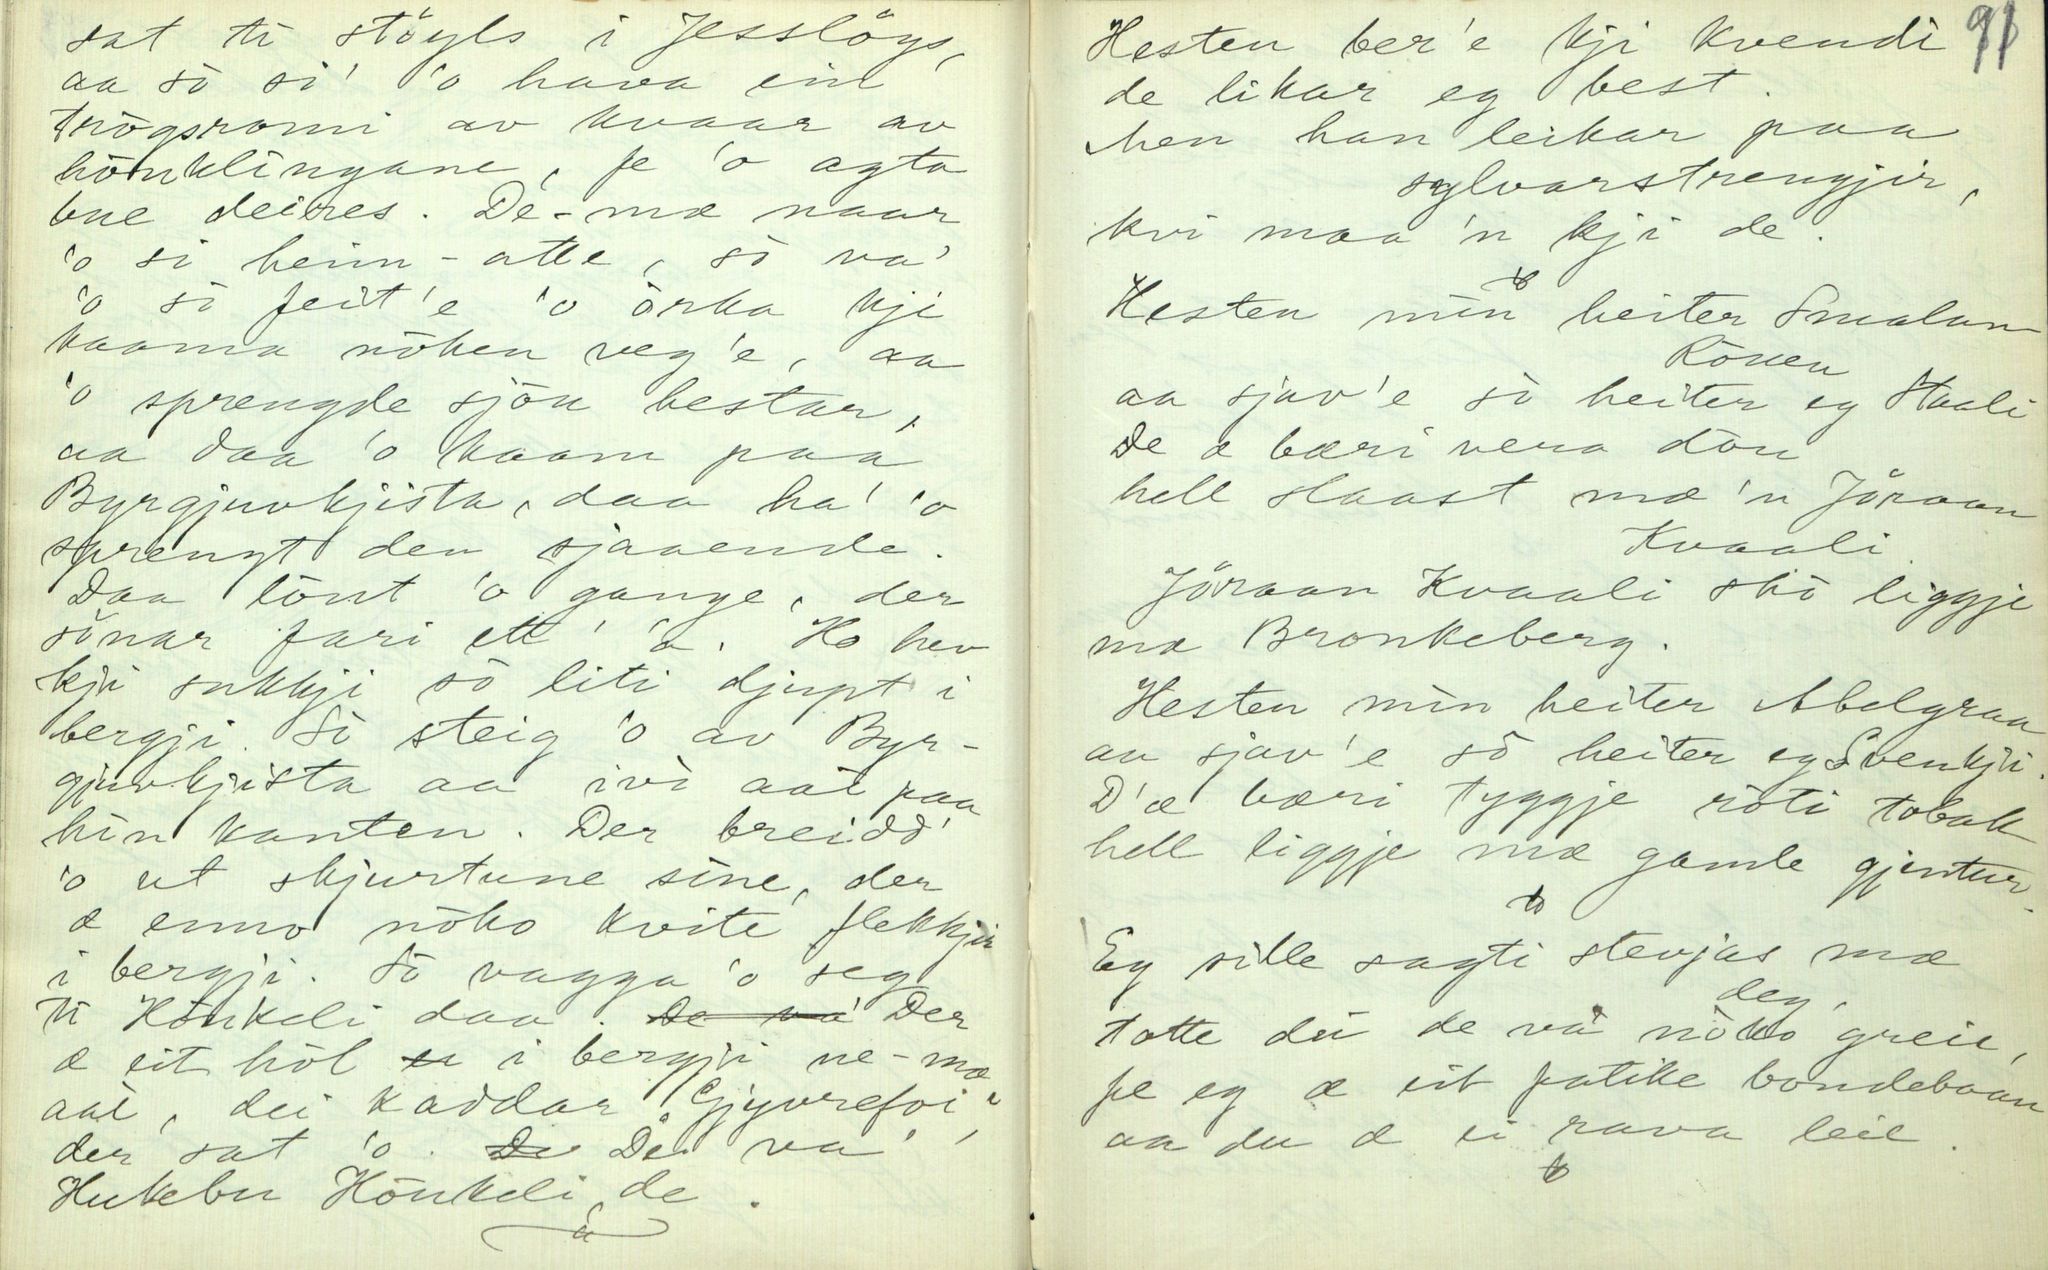 sat ti stöyls i Jesslöys,
aa sò si' 'o hava ein
trögsromi av kvaar av
hönklingane, fe 'o agta
bue deires. De-mæ naar
'o si heim-atte, sò va'
'o sò feit'e 'o örka kji
kaama nöken veg'e, aa
'o sprengde sjöu hestar,
aa daa 'o kaam paa
Byrgjuvkjista, daa ha' 'o
sprengt den sjaaende.
Daa lönt 'o gange, der
sönar fari ett' 'o. Ho hev
kji sukkji sò liti djupt i
bergji. Sò steig 'o av Byr-
gjuvkjista aa ivi aai paa
hin kanten. Der breidd'
'o ut skjurtune sine, der
æ enno nöko kvite flekkjir
i bergji. Sò vagga 'o seg
ti Hönkeli daa. De va' Der
æ eit höl i bergji ne-mæ
aai, dei kaddar "Gjyvrefoi",
der sat 'o. De De va'
Hukebu Hönkeli de.
91
Hesten ber'e kji kvendi
de likar eg best.
Men han leikar paa
sylvarstrengjir,
kvi maa 'n kji de.
Hesten min heiter Smalan
Rönen
aa sjav'e sò heiter eg Staali
De æ bæri vera dön
hell slaast mæ 'n Jöraan
Kvaali
Jöraan Kvaali skò liggje
mæ Bronkeberg.
Hesten min heiter Abelgraa
aa sjav'e sò heiter eg Svenkji.
D'æ bæri tyggje röti tobak
hell liggje mæ gamle gjentur.
Eg sille sagti stevjas mæ
deg,
totte du de va nöko greie,
fe eg æ eit fatike bondebaan
aa du æ ei rava leie.